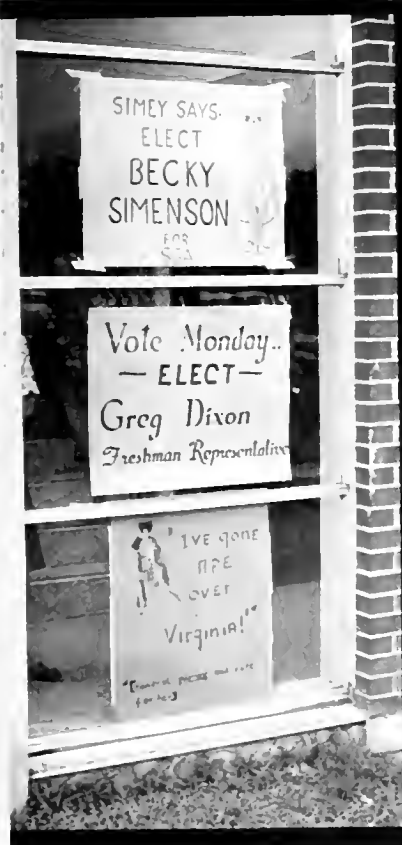 SIMEY SAYS-
ELECT
BECKY
SIMENSON
FOR
Vote Monday..
— ELECT —
Greg Dixon
Freshman Representative
"I'VE gone
APE
OVER
Virginia!"*